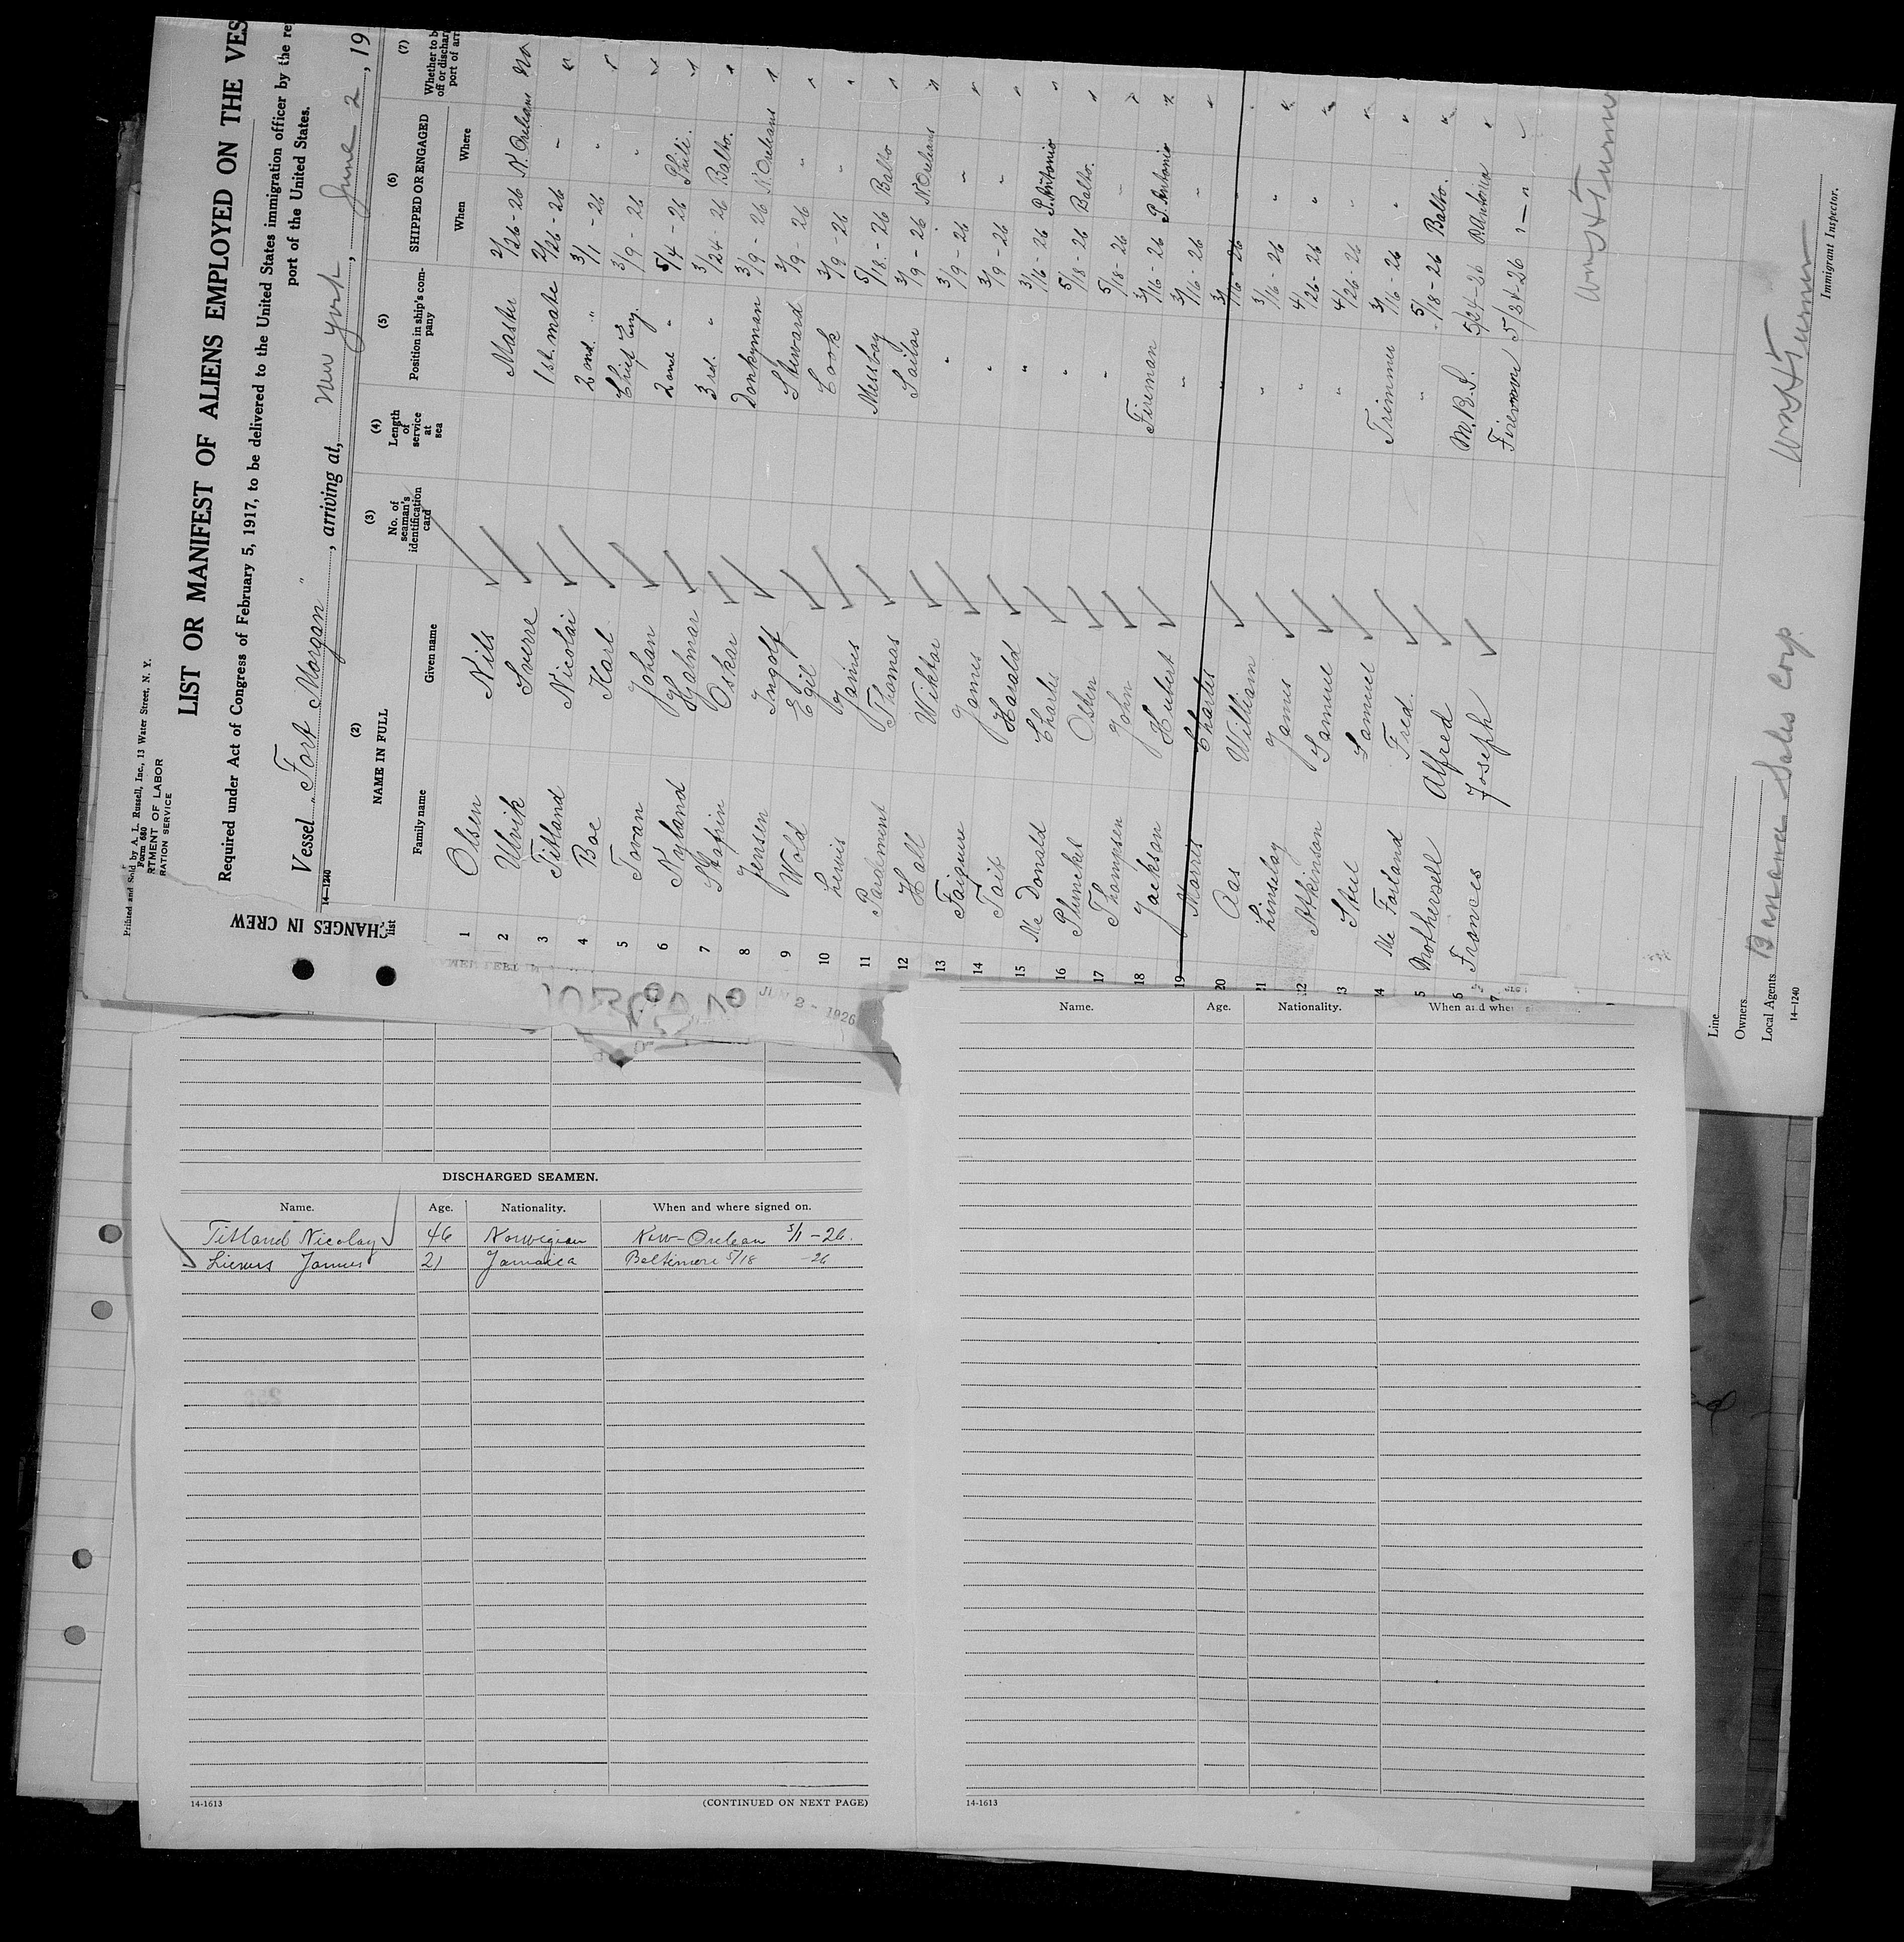 Printed and Sold by A. L. Russell, Inc., 13 Water Street, N. Y.
Form 680
RTMENT OF LABOR
RATION SERVICE
LIST OR MANIFEST OF ALIENS EMPLOYED ON THE VES
Required under Act of Congress of February 5, 1917, to be delivered to the United States immigration officer by the re
port of the United States.
Vessel "Fort Morgan", arriving at, New York, June 2, 19
14—1240
HANGES IN CREW
list
(2) NAME IN FULL
Family name Given name
(3) No. of seaman's identification card
(4) Length of service at sea
(5) Position in ship's company
(6) SHIPPED OR ENGAGED
When Where
(7) Whether to b off or dischar port of arr
1 Olsen Nils Master 2/26 - 26 N. Orleans no
2 Ulvik Sverre 1st. mate 2/26 - 26 " "
3 Titland Nicolai 2nd. " 3/1 - 26 " "
4 Boe Karl Chief Eng. 3/9 - 26 " "
5 Tovan Johan 2nd " 5/4 - 26 Phili. "
6 Nyland Hjalmar 3rd. " 3/24 - 26 Balto. "
7 Oskar Donkyman 3/9 - 26 N. Orleans "
8 Jensen Ingolf Steward 3/9 - 26 " "
9 Wold Egil Cook 3/9 - 26 " "
10 Lewis James Messboy 5/18 - 26 Balto "
11 Parchment Thomas Sailor 3/9 - 26 N. Orleans "
12 Hall Wiktor " 3/9 - 26 " "
13 James " 3/9 - 26 " "
14 Tait Harald " 3/16 - 26 P. Antonio "
15 Mc Donald Charles " 5/18 - 26 Balto. "
16 Osben " 5/18 - 26 " "
17 Thompsen John Fireman 3/16 - 26 P. Antonio "
18 Jackson Hubert " 3/16 - 26 " "
19 Morris Charles " 3/16 - 26 " "
20 Aas William " 3/16 - 26 " "
21 Linselay James " 4/26 - 26 " "
22 Atkinson Samuel " 4/26 - 26 " "
3 Steel Samuel Trimmer 3/16 - 26 " "
4 Mc Farland Fred. " 5/18 - 26 Balto. "
5 Mothersell Alfred M.B.S. 5/24-26 P. Antonio "
6 Frances Joseph Fireman 5/24-26 " — "
7
Line
Owners
Local Agents Banana Sales Corp.
14—1240
Immigrant Inspector.
JUN 2 - 1926
DISCHARGED SEAMEN.
Name. Age. Nationality. When and where signed on.
Titland Nicolay 46 Norwigian New-Orelean 3/1 - 26.
James 21 Jamaica Beltimore 5/18 -26
14-1613
(CONTINUED ON NEXT PAGE)
Name. Age. Nationality. When and whe
14-1613